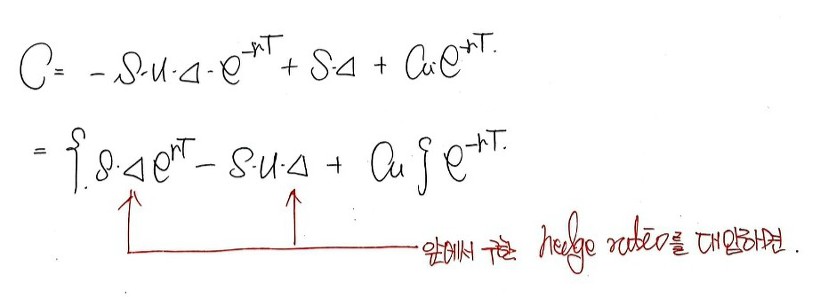 C = - S·u·Δ·e^-rT + S·Δ + Cu·e^-rT.
= { S·Δe^rT - S·u·Δ + Cu } e^-rT.
앞에서 구한 hedge ratio를 대입하면.